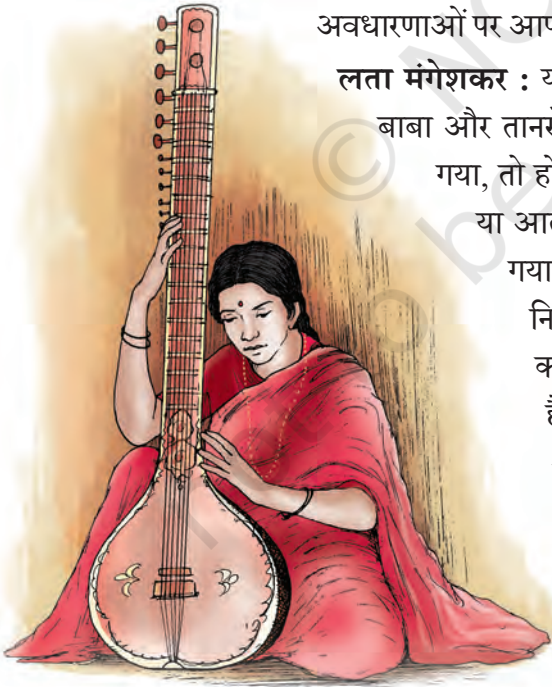 अवधारणाओं पर आप
लता मंगेशकर : य
बाबा और तानसे
गया, तो हो
या आत
गया
नि
क
है
© NC
to be